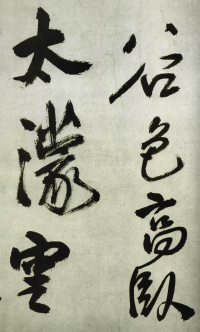 谷色高臥
太濛雲